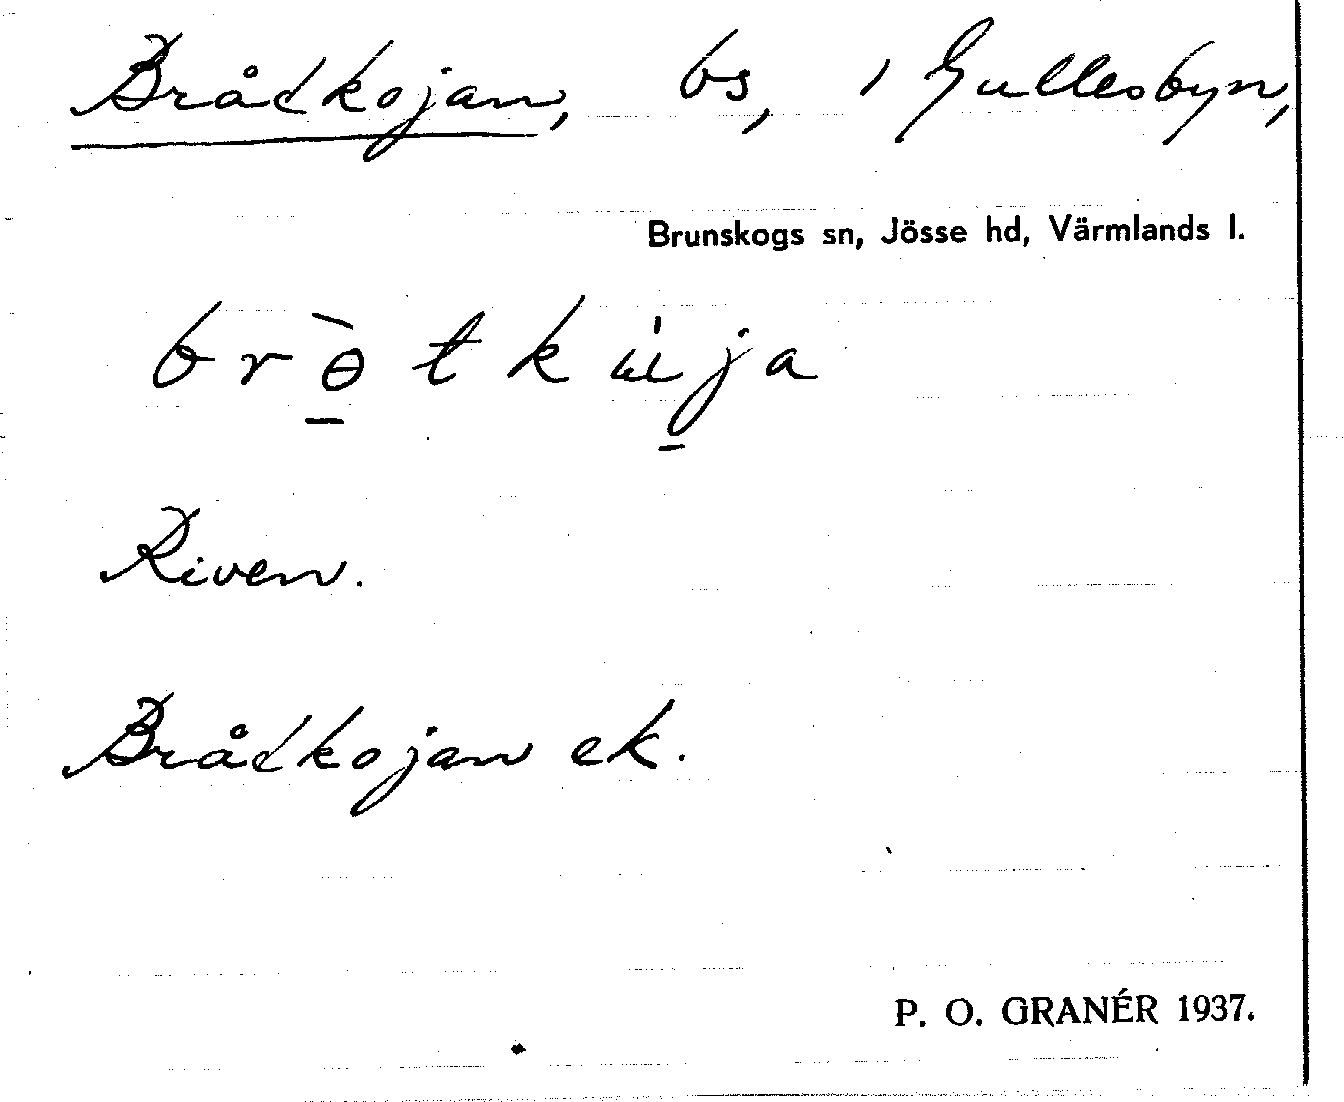 Brådkojan, bs, i Gullesbyn,
Brunskogs sn, Jösse hd, Värmlands l.
brɵ̠̀tkɯ́j̠a
Riven.
Brådkojan ek.
P. O. GRANÉR 1937.